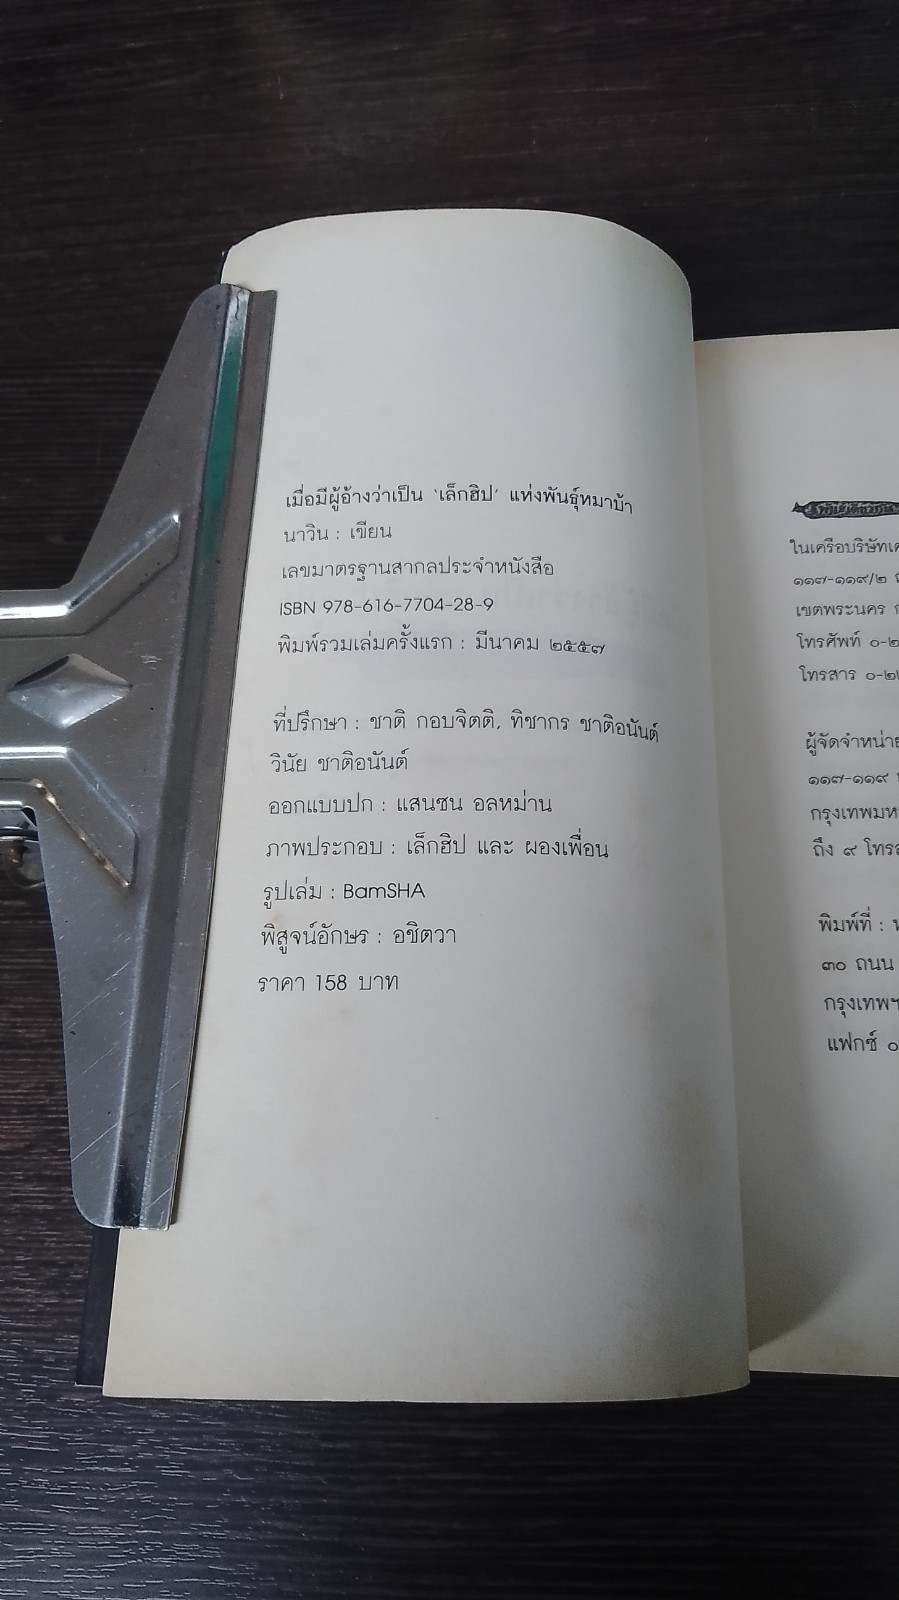 เมื่อมีผู้อ้างว่าเป็น 'เล็กฮิป' แห่งพันธุ์หมาบ้า
นาวิน : เขียน
เลขมาตรฐานสากลประจำหนังสือ
ISBN 978-616-7704-28-9
พิมพ์รวมเล่มครั้งแรก : มีนาคม ๒๕๕๗
ที่ปรึกษา : ชาติ กอบจิตติ, ทิชากร ชาติอนันต์
วินัย ชาติอนันต์
ออกแบบปก : แสนซน อลหม่าน
ภาพประกอบ : เล็กฮิป และ ผองเพื่อน
รูปเล่ม : BamSHA
พิสูจน์อักษร : อชิตวา
ราคา 158 บาท
ในเครือบริษัทเค
๑๑๗-๑๑๙/๒
เขตพระนคร ก
โทรศัพท์ ๐-๒
โทรสาร ๐-๒
ผู้จัดจำหน่าย
๑๑๗-๑๑๙
กรุงเทพมห
ถึง ๙ โทรส
พิมพ์ที่ :
๓๐ ถนน
กรุงเทพฯ
แฟกซ์ ๐